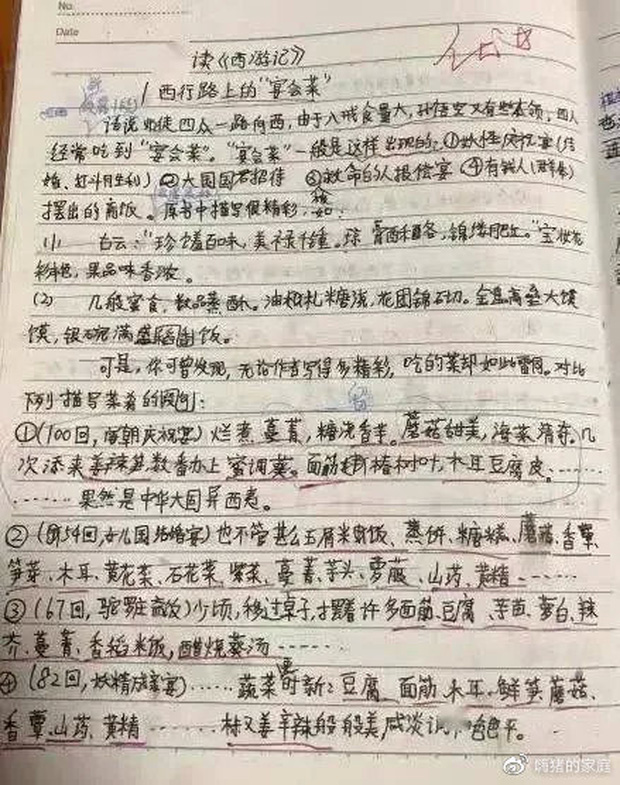 No.
Date
读《西游记》
西行路上的"宴会菜"
话说师徒四众一路向西,由于八戒食量大,孙悟空又有些本领,四人
经常吃到"宴会菜"。"宴会菜"一般是这样出现的:①妖怪庆祝宴(结
婚、打斗胜利)②大国国君招待 ③救命的人报偿宴 ④有钱人(群众)
摆出的斋饭。原书中描写很精彩,
(1) 白云:"珍馐百味,美禄千锺。琼膏酥酪,锦缕肥红。"宝妆花
彩艳,果品味香浓。
(2) 几般蜜食,数品蒸酥。油札糖浇,花团锦砌。金盘高垒大馍
馍,银碗满盛稻饭。
可是,你可曾发现,无论作者写得多精彩,吃的菜却如此雷同。对比
下列描写菜肴的
①(100回,唐朝庆祝宴)烂煮蔓菁,糖浇香芋。蘑菇甜美,海菜清奇。几
次添来姜辣笋,数番办上蜜调葵。面筋椿树叶,木耳豆腐皮。……
……果然是中华大国异西夷。
②(第54回,女儿国结婚宴)也不管甚么玉屑米饭、蒸饼、糖糕、蘑菇、香蕈、
笋芽、木耳、黄花菜、石花菜、紫菜、蔓菁、芋头、萝菔、山药、黄精……
③(67回,驼罗庄斋饭)少顷,移过桌子,摆着许多面筋、豆腐、芋苗、萝白、辣
芥、蔓菁、香稻米饭,醋烧葵汤……
④(82回,妖精宴)……蔬菜更时新:豆腐、面筋、木耳、鲜笋、蘑菇、
香蕈、山药、黄精……
辛辣般般美,咸淡
嗨猪的家庭